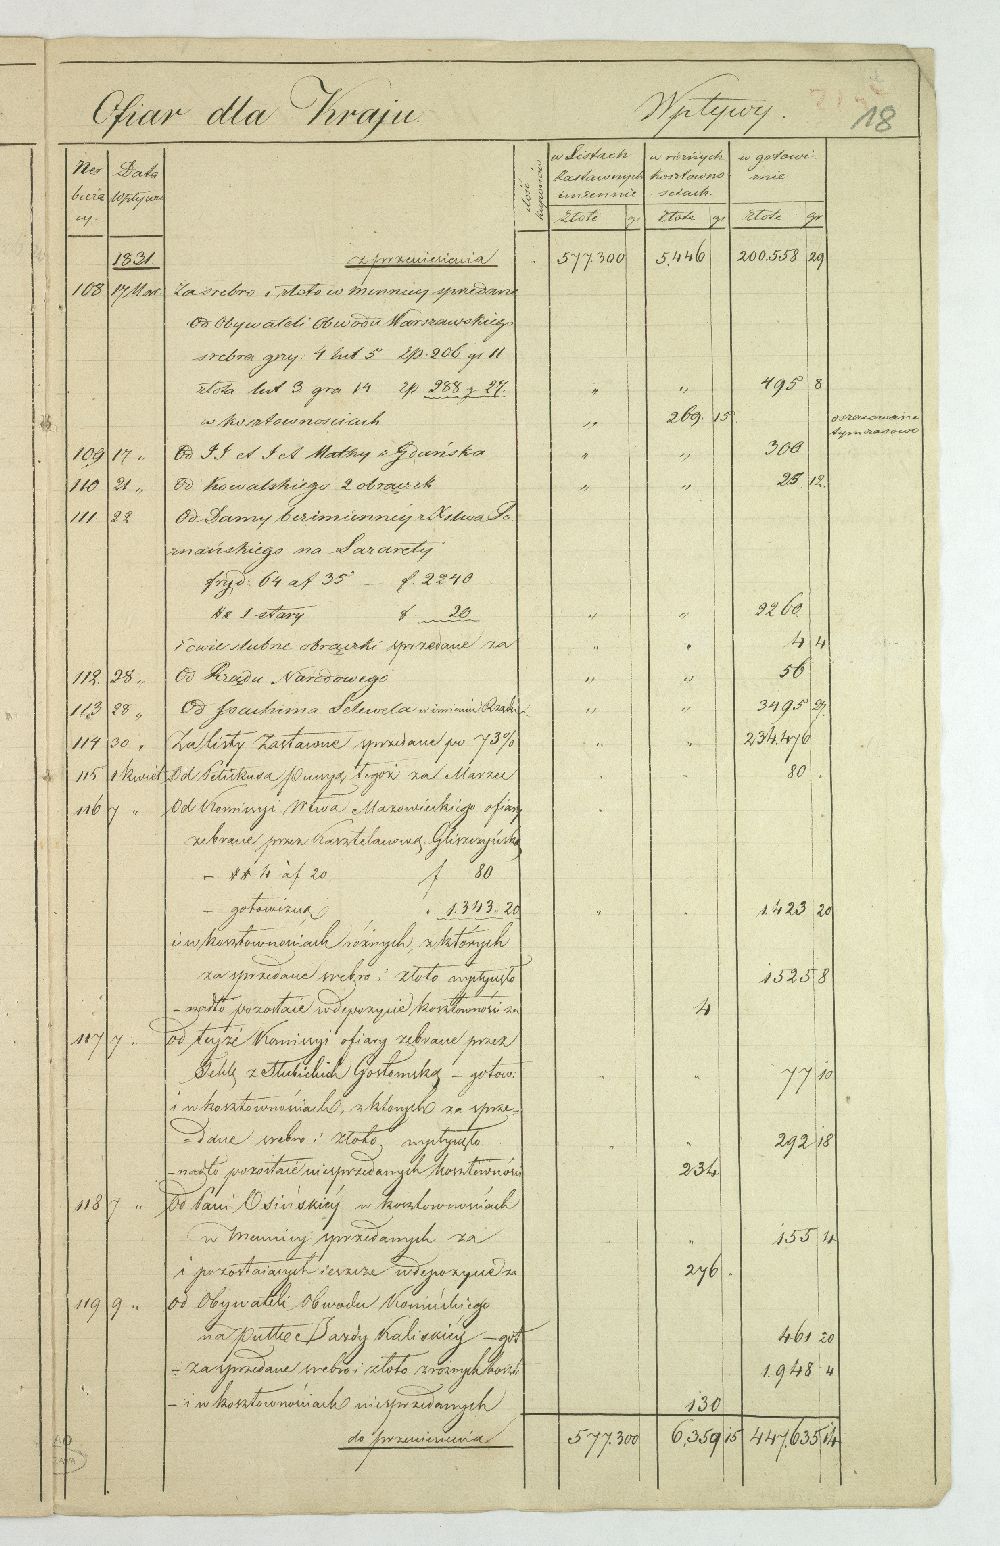 Ofiar dla Kraju Wpływy. 18
Ner bieżą cy. Data Wpływu ilość kuponów w Listach Zastawnych imiennie w różnych kosztowno- ściach w gotowi- znie
złote gr złote gr złote gr
1831 z przeniesienia 577.300 5,446 200.558 29
108 17 Mar Za srebro i złoto w mennicy sprzedane
Od Obywateli Obwodu Warszawskiego
srebra grzy. 4 łut 5 zp. 206 gr 11
złota łut 3 gra 14 zp 288 g 27. " " 495 8
w kosztownościach " 269. 15
109 17 " Od J J et J A Mathy z Gdańska " " 300
110 21 " Od Kowalskiego 2 obrączek " " 25 12
111 22 Od Damy bezimiennéy z Xstwa Po
znańskiego na Lazarety
fryd: 64 af 35 – f. 2240
## 1 stary f 20 " " 2260
i dwie slubne obrączki sprzedane za " " 4 4
112. 28 " Od Rządu Narodowego " " 56
113 28 " Od Joachima Lelewela w imieniu " " 3495 27
114 30 " Za listy Zastawne sprzedane po 73% " " 234.476
115 1 kwiet Od Petiskusa pensyą tegoż za Marzec " " 80 .
116 7 " Od Kommissyi Wtwa Mazowieckiego ofiary
zebrane przez Kasztelanową Gliszczyńską
– ## 4 àf 20 f 80
– gotowizną " 1.343. 20 " " 1.423 20
i w kosztownościach różnych, z których
za sprzedane srebro i złoto wpłynęło 1525 8
– nadto pozostaie w depozycie kosztowności za 4
117 7 " od teyże Kommissyi ofiary zebrane przez
Teklę z Gostomską – gotow: " " 77 10
i w kosztownościach, z których za sprze-
-dane srebro i złoto, wpłynęło " " 292 18
– nadto pozostaie niesprzedanych kosztowności 234
118 7 " Od Pani Osińskiéy w kosztownościach
w Mennicy sprzedanych za " 155 4
i pozostaiących ieszcze w depozycie za 276 .
119 9 " Od Obywateli Obwodu Konińskiego
na Jazdy Kaliskiéy – got 461 20
– za sprzedane srebro i złoto z różnych koszt: 1.948 4
– i w kosztownościach niesprzedanych 130
do przeniesienia 577.300 6,359 15 447,635 14